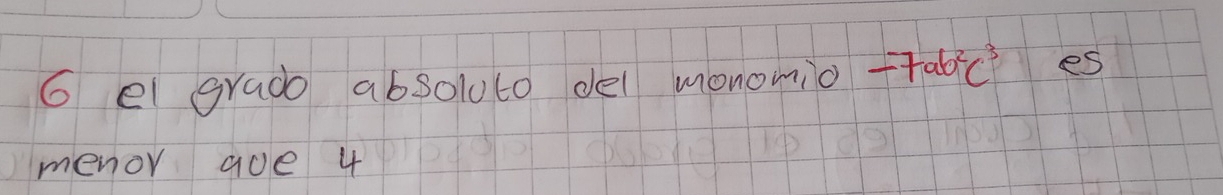 6 el grado absoluto del monomio -7ab²c³ es
menor que 4